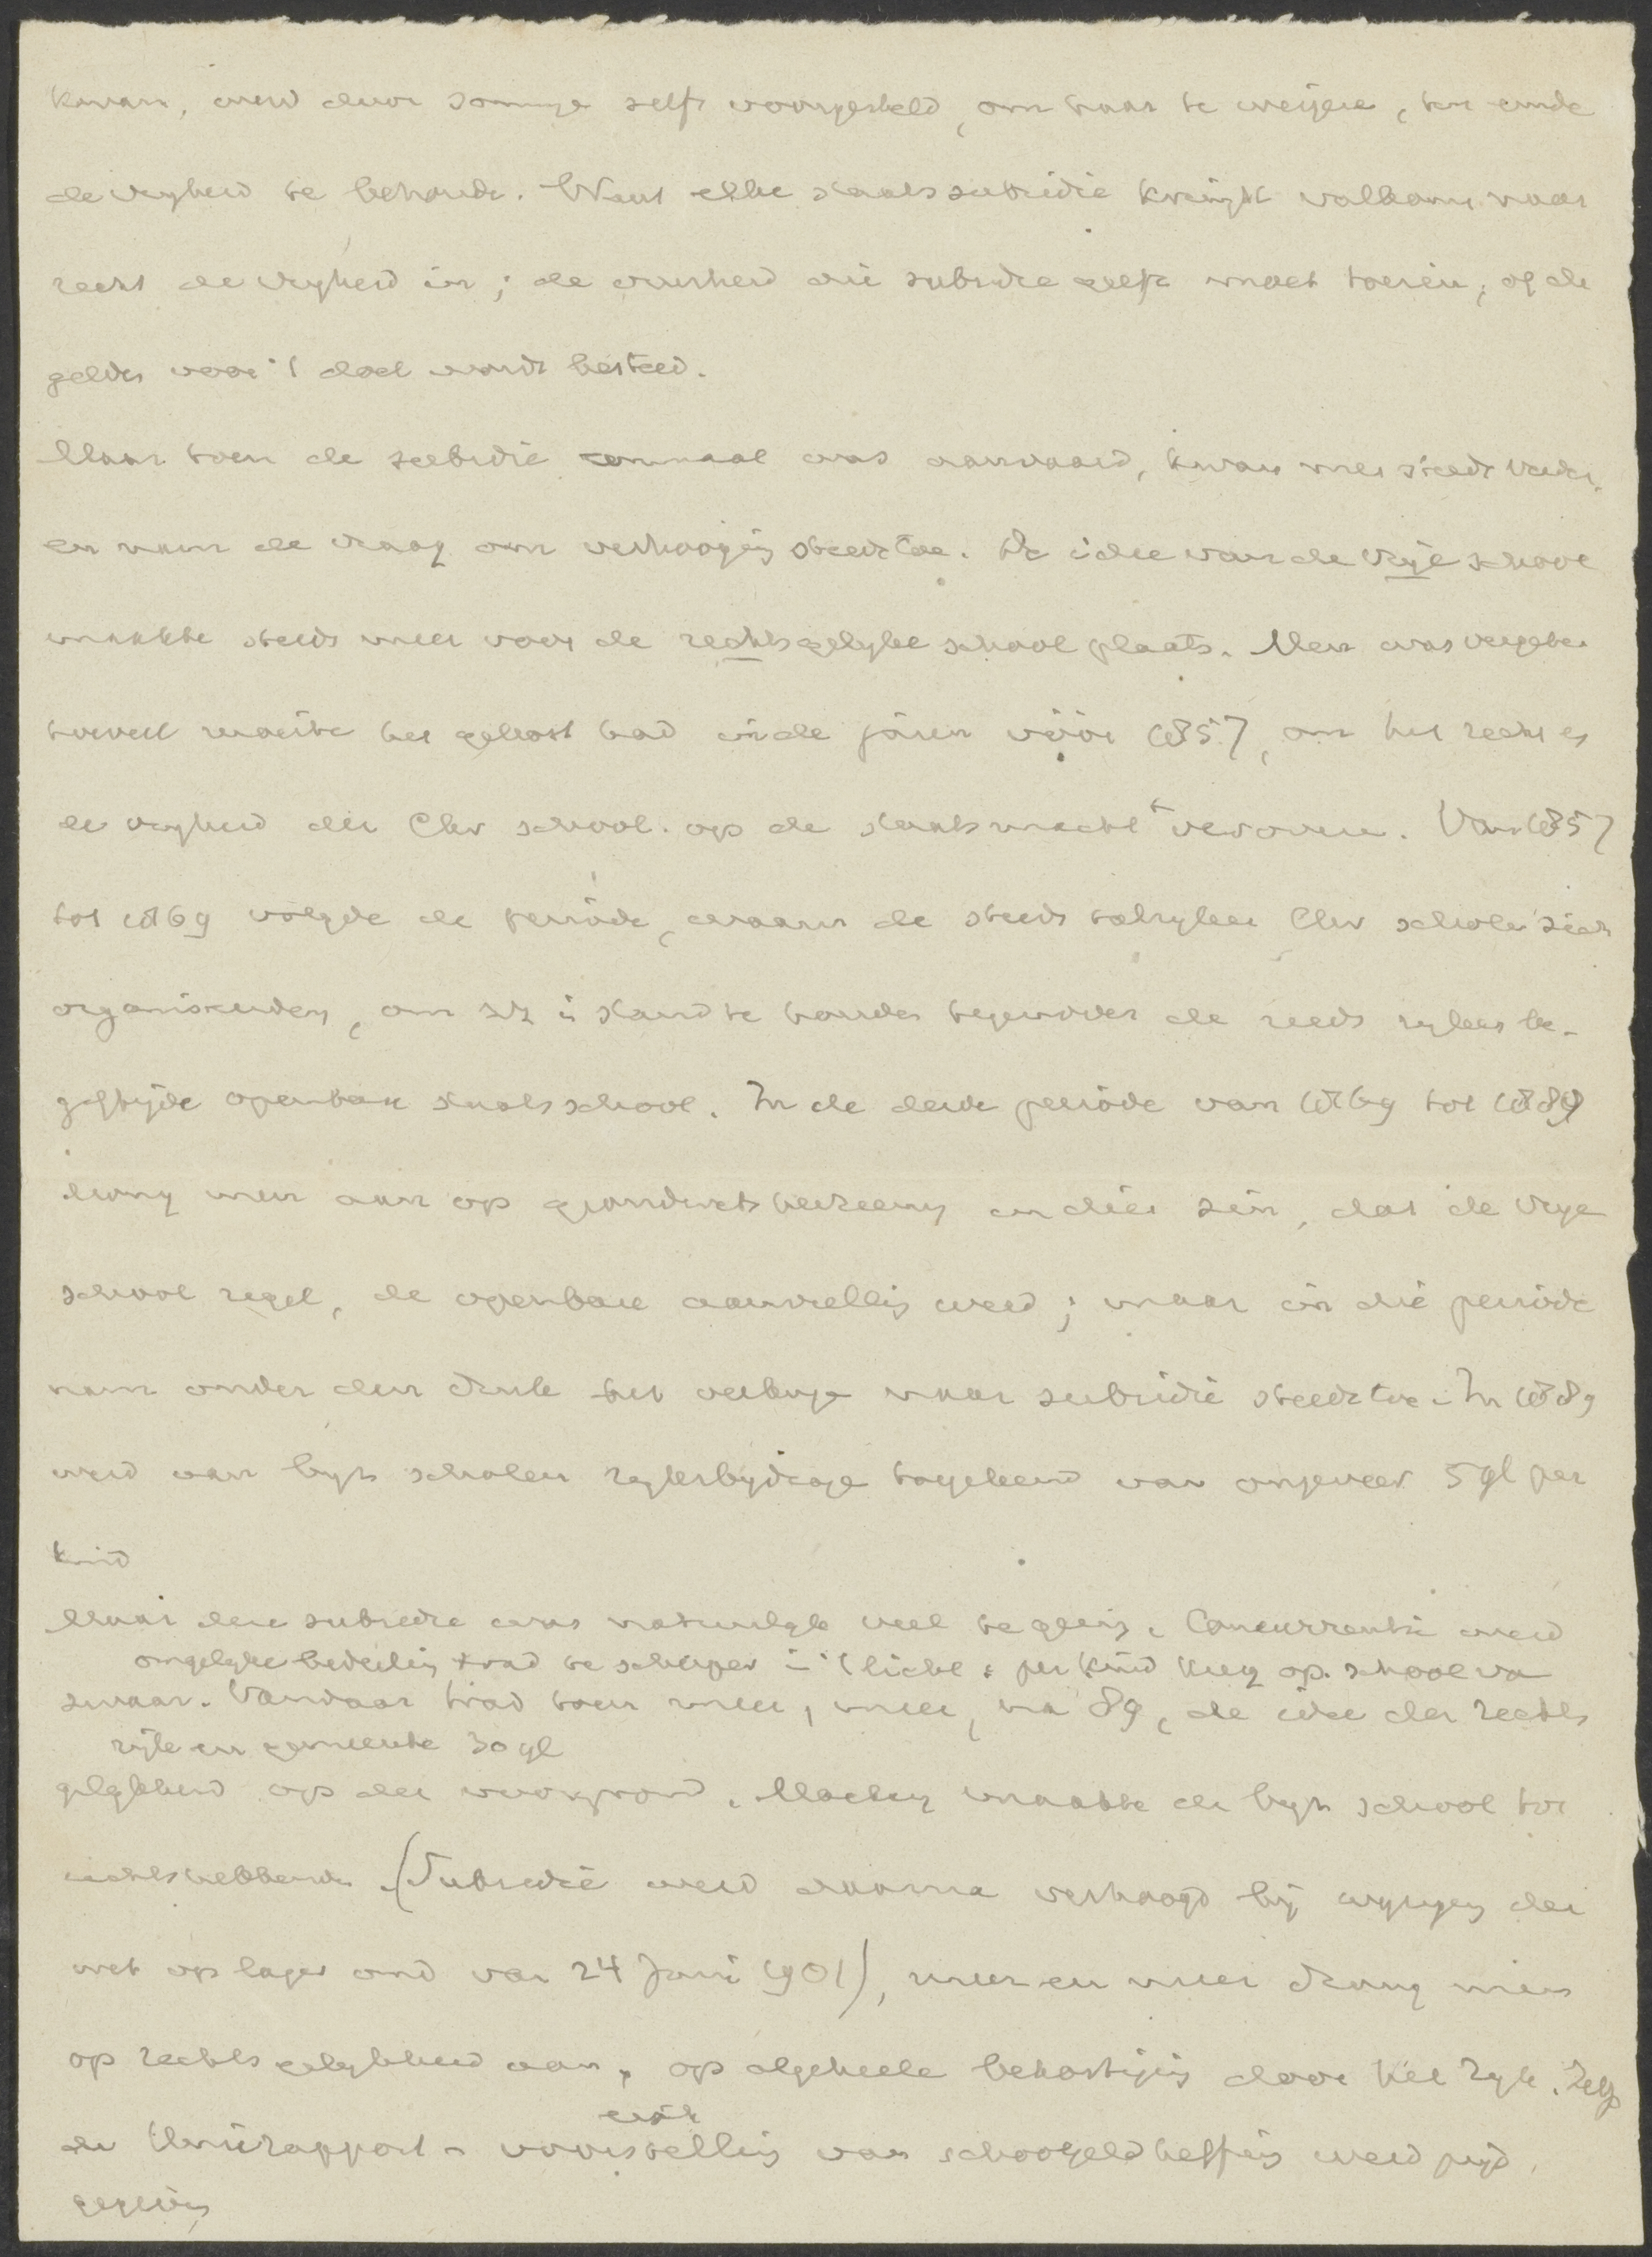 kwam, werd door sommige zelfs voorgesteld, om haar te weigere, ten einde
de vryheid te behoude. Want elke staatssubsidie krimpt volkome naar
recht de vryheid in; de overheid die subsidie geeft moet toezie, of de
gelde voor 't doel word besteed.
Maar toen de subsidie eenmaal was aanvaard, kwam men steeds verder
en nam de vraag om verhooging steeds toe. De idee van de vrije school
maakte steeds meer voor de rechtsgelyke school plaats. Men was vergete
hoeveel moeite het gekost had in de jaren vóór 1857, om het recht en
de vryheid der Chr school op de staatsmacht te verovere. Van 1857
tot 1869 volgde de periode, waarin de steeds talryker Chr schole zich
organiseerden, om zich in stand te houde tegenover de reeds rykers be-
giftigde openbare staatsschool. In de derde periode van 1869 tot 1889
drong men aan op grondwetsherzieng in die zin, dat de vrye
school regel, de openbare aanvulling werd; maar in die periode
nam onder den druk het verlange naar subsidie steeds toe. In 1889
werd aan byz scholen ryksbydrage toegekend van ongeveer 5 gl per
kind
Maar deze subsidie was natuurlyk veel te gering. Concurrentie werd
ongelyke bedeeling trad te scherper in 't licht: per kind kreeg op. school van
zwaar. Vandaar trad toen meer, meer, na 89, de idee der rechts
rijk en gemeente 30 gl
gelykheid op den voorgrond. Mackay maakte de byz school tot
rechtshebbende. (Subsidie werd daarna verhoogd bij wyziging der
wet op lager ond van 24 Juni 1901), meer en meer drong men
op rechtsgelykheid aan, op algeheele bekostiging door het Ryk. Zelfs
de Unierapport-voorstelling van schoolgeldheffing werd prijs
gegeven